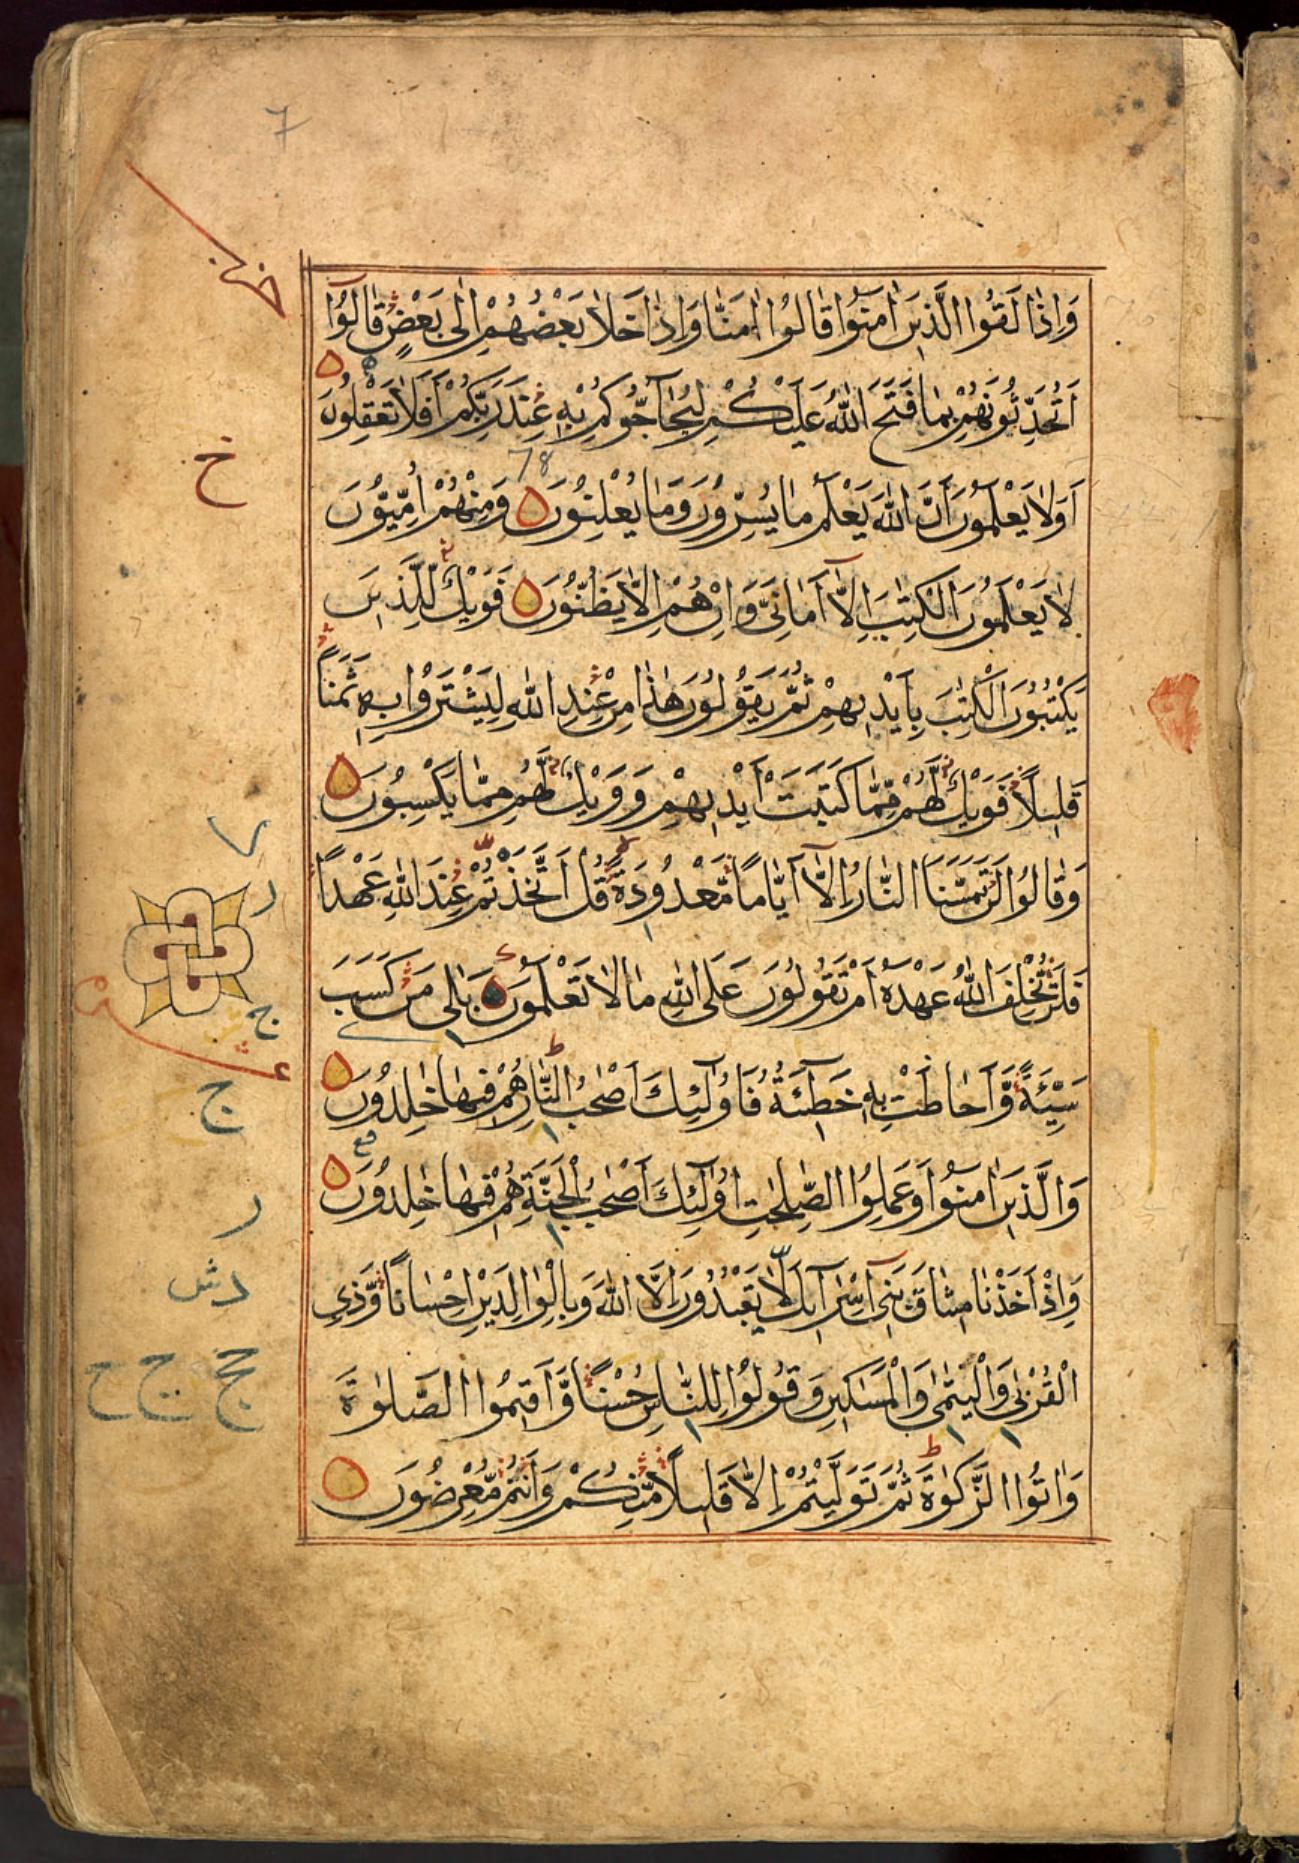 7
وَاِذَا لَقُوا الَّذِينَ اٰمَنُوا قَالُوا اٰمَنَّا وَاِذَا خَلَا بَعْضُهُمْ اِلٰى بَعْضٍ قَالُوا
اَتُحَدِّثُونَهُمْ بِمَا فَتَحَ اللّٰهُ عَلَيْكُمْ لِيُحَآجُّوكُمْ بِهٖ عِنْدَ رَبِّكُمْ اَفَلَا تَعْقِلُونَ
78
خ
اَوَلَا يَعْلَمُونَ اَنَّ اللّٰهَ يَعْلَمُ مَا يُسِرُّونَ وَمَا يُعْلِنُونَ وَمِنْهُمْ اُمِّيُّونَ
لَا يَعْلَمُونَ الْكِتٰبَ اِلَّا اَمَانِىَّ وَاِنْ هُمْ اِلَّا يَظُنُّونَ فَوَيْلٌ لِلَّذِينَ
يَكْتُبُونَ الْكِتٰبَ بِاَيْدِيهِمْ ثُمَّ يَقُولُونَ هٰذَا مِنْ عِنْدِ اللّٰهِ لِيَشْتَرُوا بِهٖ ثَمَنًا
قَلِيلًا فَوَيْلٌ لَهُمْ مِمَّا كَتَبَتْ اَيْدِيهِمْ وَوَيْلٌ لَهُمْ مِمَّا يَكْسِبُونَ
وَقَالُوا لَنْ تَمَسَّنَا النَّارُ اِلَّا اَيَّامًا مَعْدُودَةً قُلْ اَتَّخَذْتُمْ عِنْدَ اللّٰهِ عَهْدًا
ر
فَلَنْ تُخْلِفَ اللّٰهُ عَهْدَهُ اَمْ تَقُولُونَ عَلَى اللّٰهِ مَا لَا تَعْلَمُونَ بَلٰى مَنْ كَسَبَ
ج
سَيِّئَةً وَاَحَاطَتْ بِهٖ خَطِٓيئَةُ فَاُولٰٓئِكَ اَصْحٰبُ النَّارِ هُمْ فِيهَا خٰلِدُونَ
ج
وَالَّذِينَ اٰمَنُوا وَعَمِلُوا الصّٰلِحٰتِ اُولٰٓئِكَ اَصْحٰبُ الْجَنَّةِ هُمْ فِيهَا خٰلِدُونَ
ر
وَاِذْ اَخَذْنَا مِيثَاقَ بَنِىٓ اِسْرَآئِلَ لَا يَعْبُدُونَ اِلَّا اللّٰهَ وَبِالْوَالِدَيْنِ اِحْسَانًا وَذِى
الْقُرْبٰى وَالْيَتٰمٰى وَالْمَسٰكِينِ وَقُولُوا لِلنَّاسِ حُسْنًا وَاَقِيمُوا الصَّلٰوةَ
وَاٰتُوا الزَّكٰوةَ ثُمَّ تَوَلَّيْتُمْ اِلَّا قَلِيلًا مِنْكُمْ وَاَنْتُمْ مُعْرِضُونَ